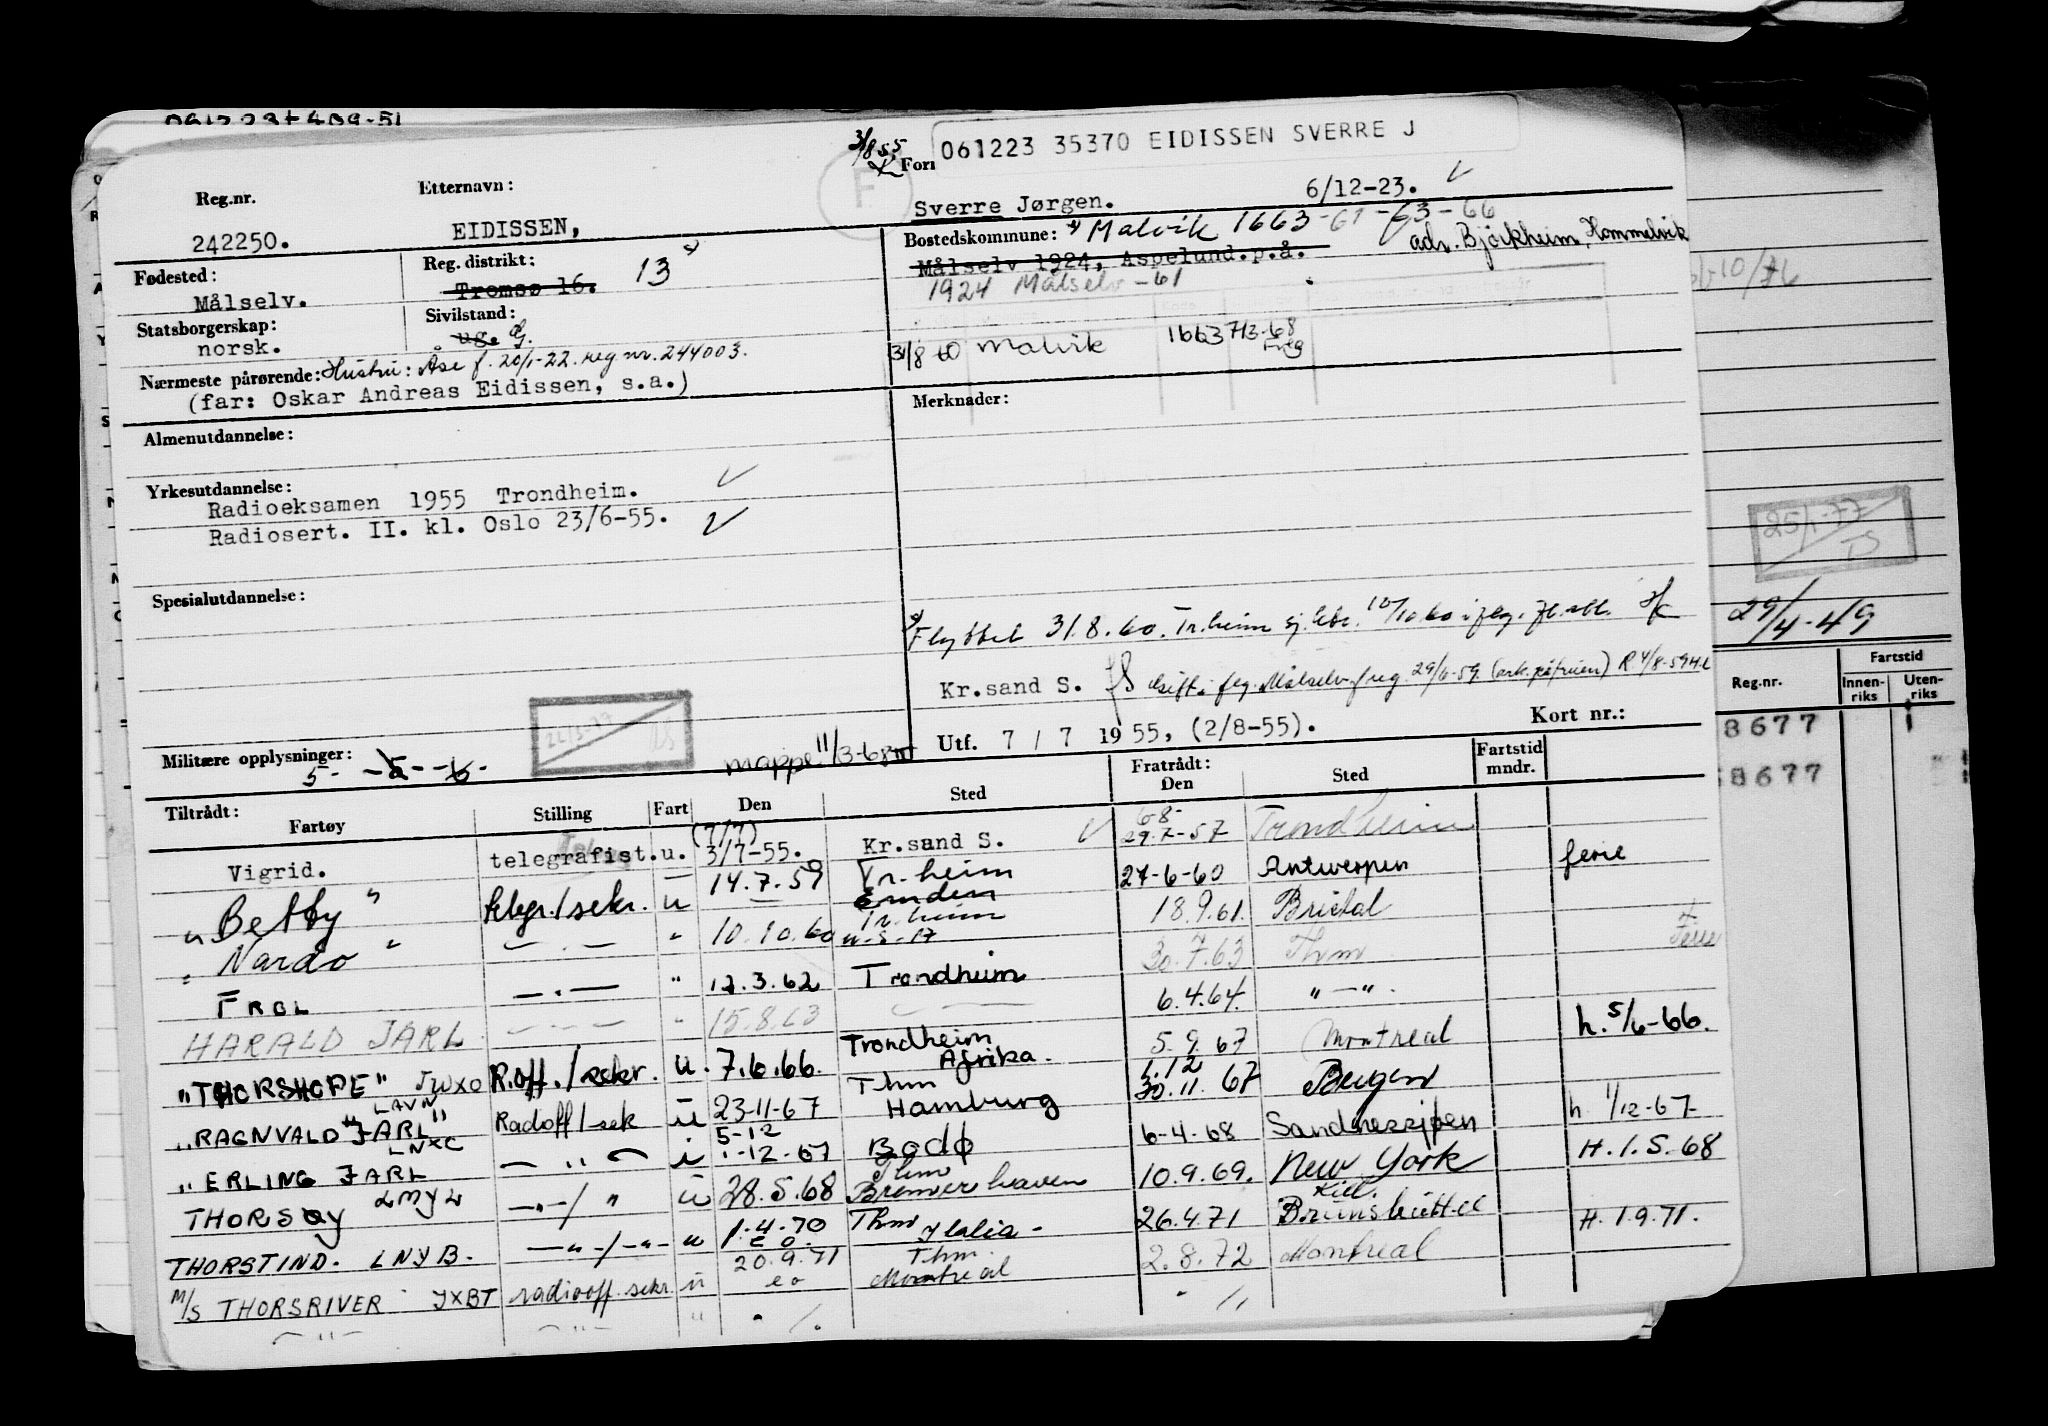 061223 35370 EIDISSEN SVERRE J
3/8 55
Reg.nr. Etternavn:
242250. EIDISSEN, Sverre Jørgen. 6/12-23.
Fødested: Reg. distrikt: Bostedskommune: Malvik 1663-61-63-66
adr. Bjørkheim, Hommelvik
Målselv. Tromsø 16. 13 Målselv 1924, Aspelund.p.å.
1924 Målselv -61
Statsborgerskap: Sivilstand:
norsk. ug. g.
31/8 60 Malvik 1663 713-68
Nærmeste pårørende: Hustru: Åse f. 20/1-22. reg nr. 244003.
(far: Oskar Andreas Eidissen, s.a.)
Almenutdannelse: Merknader:
Yrkesutdannelse:
Radioeksamen 1955 Trondheim.
Radiosert. II. kl. Oslo 23/6-55.
Spesialutdannelse:
Flyttet 31.8.60. Tr.heim
Kr.sand S. Gift. flg. Målselv f reg. 29/6-59
Utf. 7 / 7 1955, (2/8-55). Kort nr.:
Militære opplysninger: 5- -5- -6-
mappe 11/3-68
Tiltrådt: Fratrådt: Fartstid mndr.
Fartøy Stilling Fart Den Sted Den Sted
(7/7) 68-
Vigrid. telegrafist. u. 3/7-55. Kr.sand S. 29.7-57 Trondheim
" Betty " telegr./sekr. u 14.7.59 Tr.heim Emden 27-6-60 Antwerpen ferie
" Nardo " — . — " 10.10.60 Tr.heim 18.9.61. Bristol
FROL — . — " 12.3.62 Trondheim 30.7.63 Thm Ferie
HARALD JARL — — — " 15.8.63 6.4.64. " — " .
"THORSHOPE" JWXO R.off./sekr. u. 7.6.66. Trondheim Afrika. 5.9.67 Montreal h. 5/6-66.
"RAGNVALD JARL" LAVN Radoff/sek u 23-11-67 Thm Hamburg 1.12 30.11.67 Bergen
5-12
" ERLING JARL LNXC — " — i 1-12-67 Bodø 6-4-68 Sandnessjøen h. 1/12-67
THORSØY LMYL — " — / " u 28.5.68 Thm Bremerhaven 10.9.69. New York H. 1.5.68
THORSTIND. LNYB. — " — / — " — u 1.4.70 e o. Thm Italia - 26.4.71 Kiel. Brunsbüttel
M/S THORSRIVER JXBT radiooff. sekr. u 20.9.71 e o Thm. Montreal 2.8.72 Montreal H. 1.9.71.
— " — — " — "
25/1-77
TS
29/4-49
Reg.nr. Fartstid
Innen-riks Uten-riks
8677
8677